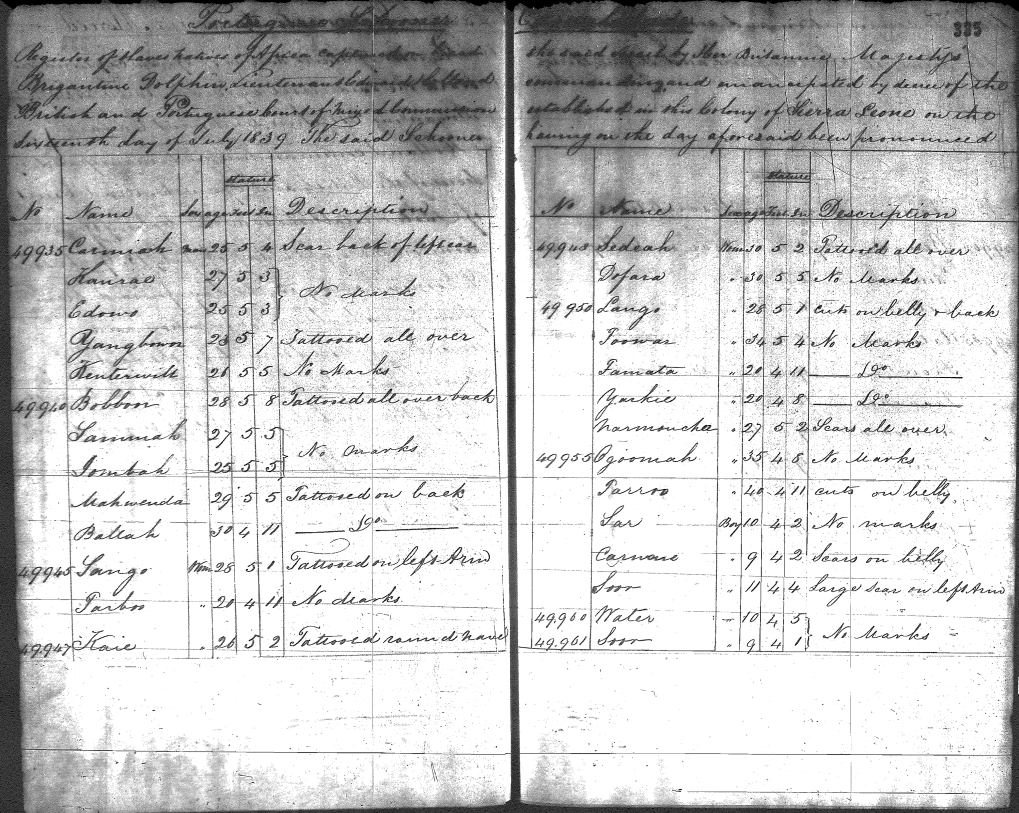 Portuguese Schooner
335
Register of Slaves natives of Africa captured on board
the said vessel by Her Britannic Majesty's
Brigantine Dolphin, Lieutenant Edward Holland
commanding and emancipated by decree of the
British and Portuguese court of mixed Commission
established in this Colony of Sierra Leone on the
sixteenth day of July 1839 The said Schooner
having on the day aforesaid been pronounced
Stature
No Name Sex age Feet In Description
49935 Carmiah man 25 5 4 Scar back of left ear
Hanrae 27 5 3
Edowo 25 5 3
No Marks
Yangbown 23 5 7 Tattooed all over
Kenterwill 26 5 5 No Marks
49940 Bobboo 28 5 8 Tattooed all over back
Sammah 27 5 5
Jombah 25 5 5
No Marks
Mahwenda 29 5 5 Tattooed on back
Ballah 30 4 11 Do
49945 Sango Wom 28 5 1 Tattooed on left Arm
Tarboo " 20 4 11 No Marks
49947 Kaie " 26 5 2 Tattooed round navel
Stature
No Name Sex age Feet In Description
49948 Sedeah Wom 30 5 2 Tattooed all over
Dofara " 30 5 5 No Marks
49950 Lango " 28 5 1 cuts on belly & back
Toowar " 34 5 4 No Marks
Famata " 20 4 11 Do
Yarkie " 20 4 8 Do
Narmoucha " 27 5 2 Scars all over
49955 Ogoomah " 35 4 8 No Marks
Parroo " 40 4 11 cuts on belly
Sar Boy 10 4 2 No marks
Carnare " 9 4 2 Scars on belly
Soor " 11 4 4 Large scar on left Arm
49960 Water " 10 4 5
49961 Soor " 9 4 1
No Marks